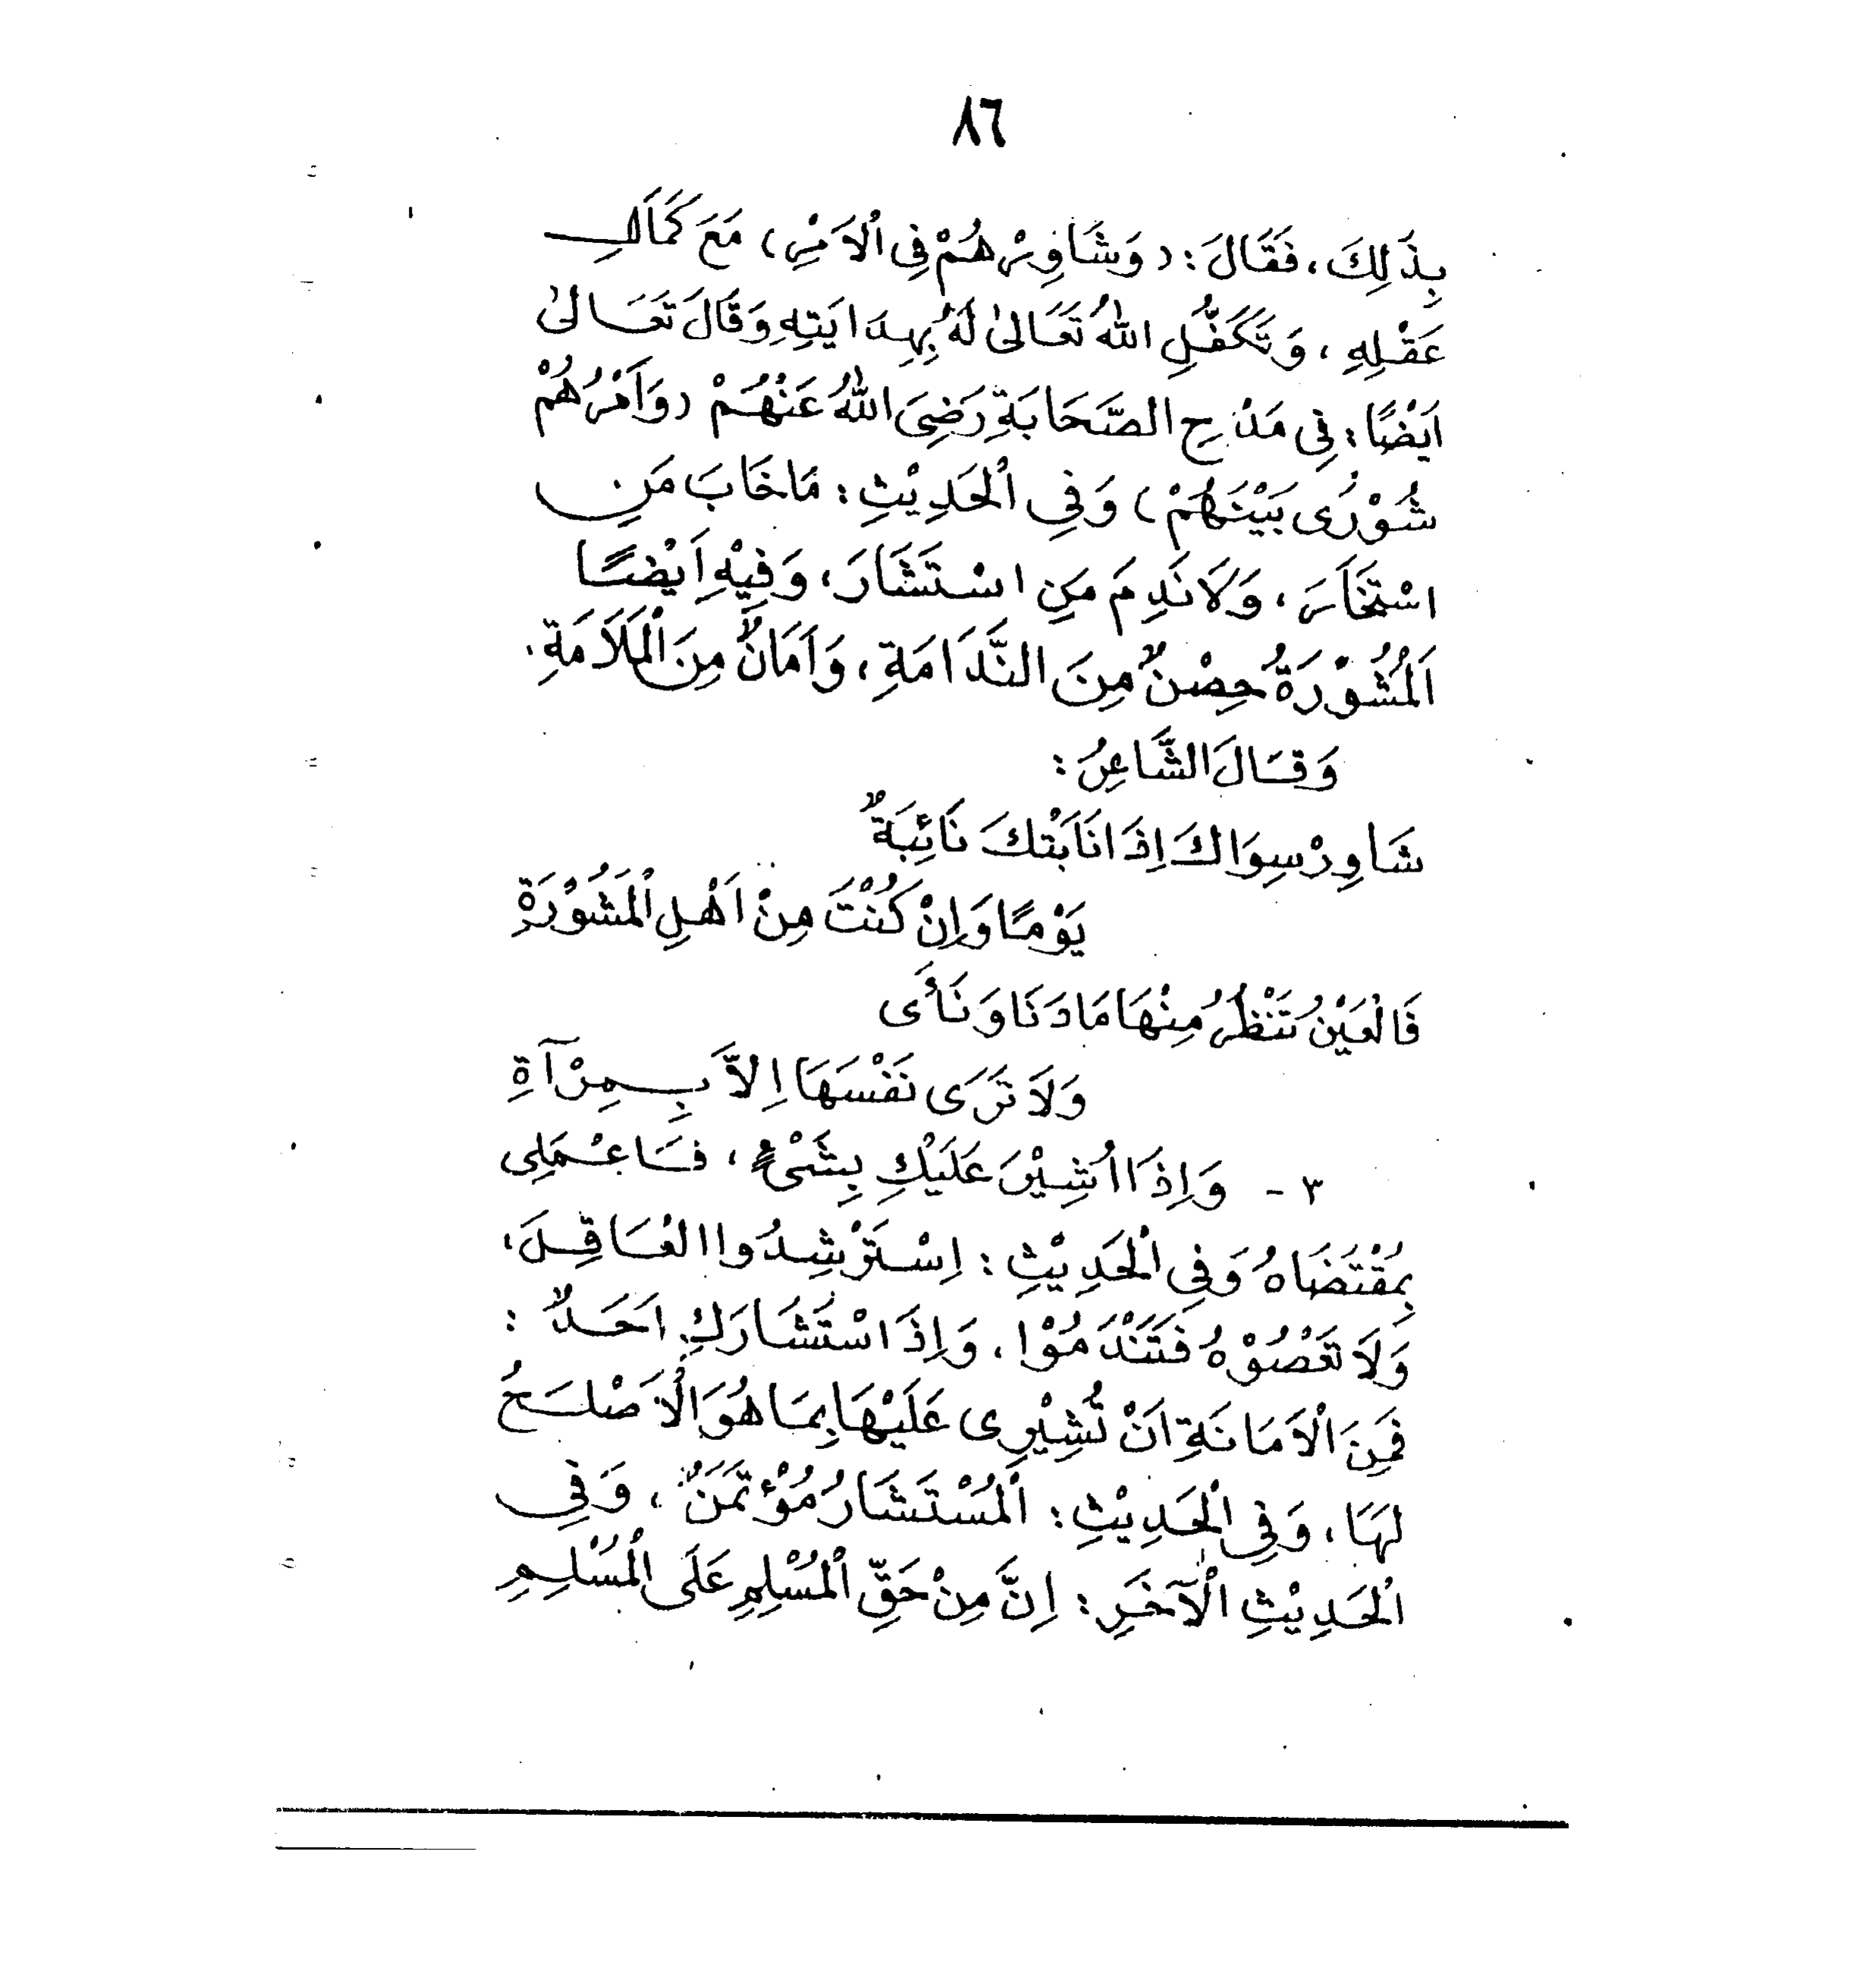 ٨٦
بِذٰلِكَ، فَقَالَ: (وَشَاوِرْهُمْ فِى اْلاَمْرِ) مَعَ كَمَالِ
عَقْلِهِ، وَتَكَفُّلِ اللّٰهُ تَعَالىٰ لَهُ بِهِدَايَتِهِ وَقَالَ تَعَالىٰ
اَيْضًا: فِى مَدْحِ الصَّحَابَةِ رَضِىَ اللّٰهُ عَنْهُمْ (وَاَمْرُهُمْ
شُوْرٰى بَيْنَهُمْ) وَفِى الْحَدِيْثِ: مَا خَابَ مَنِ
اسْتَخَارَ، وَلاَ نَدِمَ مَنِ اسْتَشَارَ، وَفِيْهِ اَيْضًا
اَلْمُشُوْرَةُ حِصْنٌ مِنَ النَّدَامَةِ، وَاَمَانٌ مِنَ الْمَلاَمَةِ.
وَقَالَ الشَّاعِرُ:
شَاوِرْ سِوَاكَ اِذَا نَابَتْكَ نَائِبَةٌ
يَوْمًا وَاِنْ كُنْتَ مِنْ اَهْلِ الْمَشُوْرَةِ
فَالْعَيْنُ تَنْظُرُ مِنْهَا مَا دَنَا وَنَأَى
وَلاَ تَرَى نَفْسَهَا اِلاَّ بِمِرْآةِ
٣ - وَاِذَا اُشِيْرَ عَلَيْكِ بِشَىْءٍ، فَاعْمَلِى
بِمُقْتَضَاهُ وَفِى الْحَدِيْثِ: اِسْتَرْشِدُوا الْعَاقِلَ،
وَلاَ تَعْصُوْهُ فَتَنْدَمُوْا، وَاِذَا اسْتَشَارَكِ اَحَدٌ:
فَمِنَ اْلاَمَانَةِ اَنْ تُشِيْرِى عَلَيْهَا بِمَا هُوَ اْلاَصْلَحُ
لَهَا، وَفِى الْحَدِيْثِ: اَلْمُسْتَشَارُ مُؤْتَمَنٌ، وَفِى
الْحَدِيْثِ اْلآخَرِ: اِنَّ مِنْ حَقِّ الْمُسْلِمِ عَلَى الْمُسْلِمِ